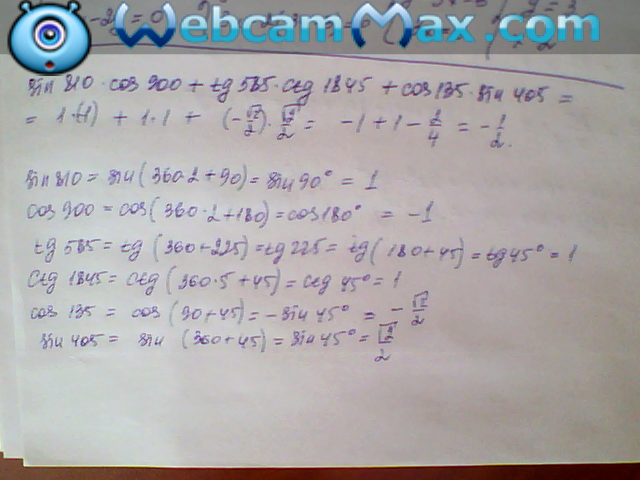 WebcamMax.com
sin 810 · cos 900 + tg 585 · ctg 1845 + cos 135 · sin 405 =
= 1·(-1) + 1·1 + (-√2/2)·√2/2 = -1+1-2/4 = -1/2.
sin 810 = sin(360·2+90) = sin 90° = 1
cos 900 = cos(360·2+180) = cos 180° = -1
tg 585 = tg (360+225) = tg 225 = tg(180+45) = tg 45° = 1
ctg 1845 = ctg (360·5+45) = ctg 45° = 1
cos 135 = cos (90+45) = -sin 45° = -√2/2
sin 405 = sin (360+45) = sin 45° = √2/2